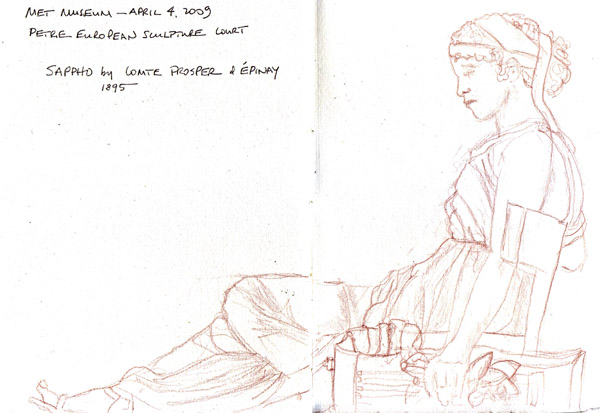 MET MUSEUM — APRIL 4, 2009
PETRIE EUROPEAN SCULPTURE COURT
SAPPHO by COMTE PROSPER d'ÉPINAY
1895